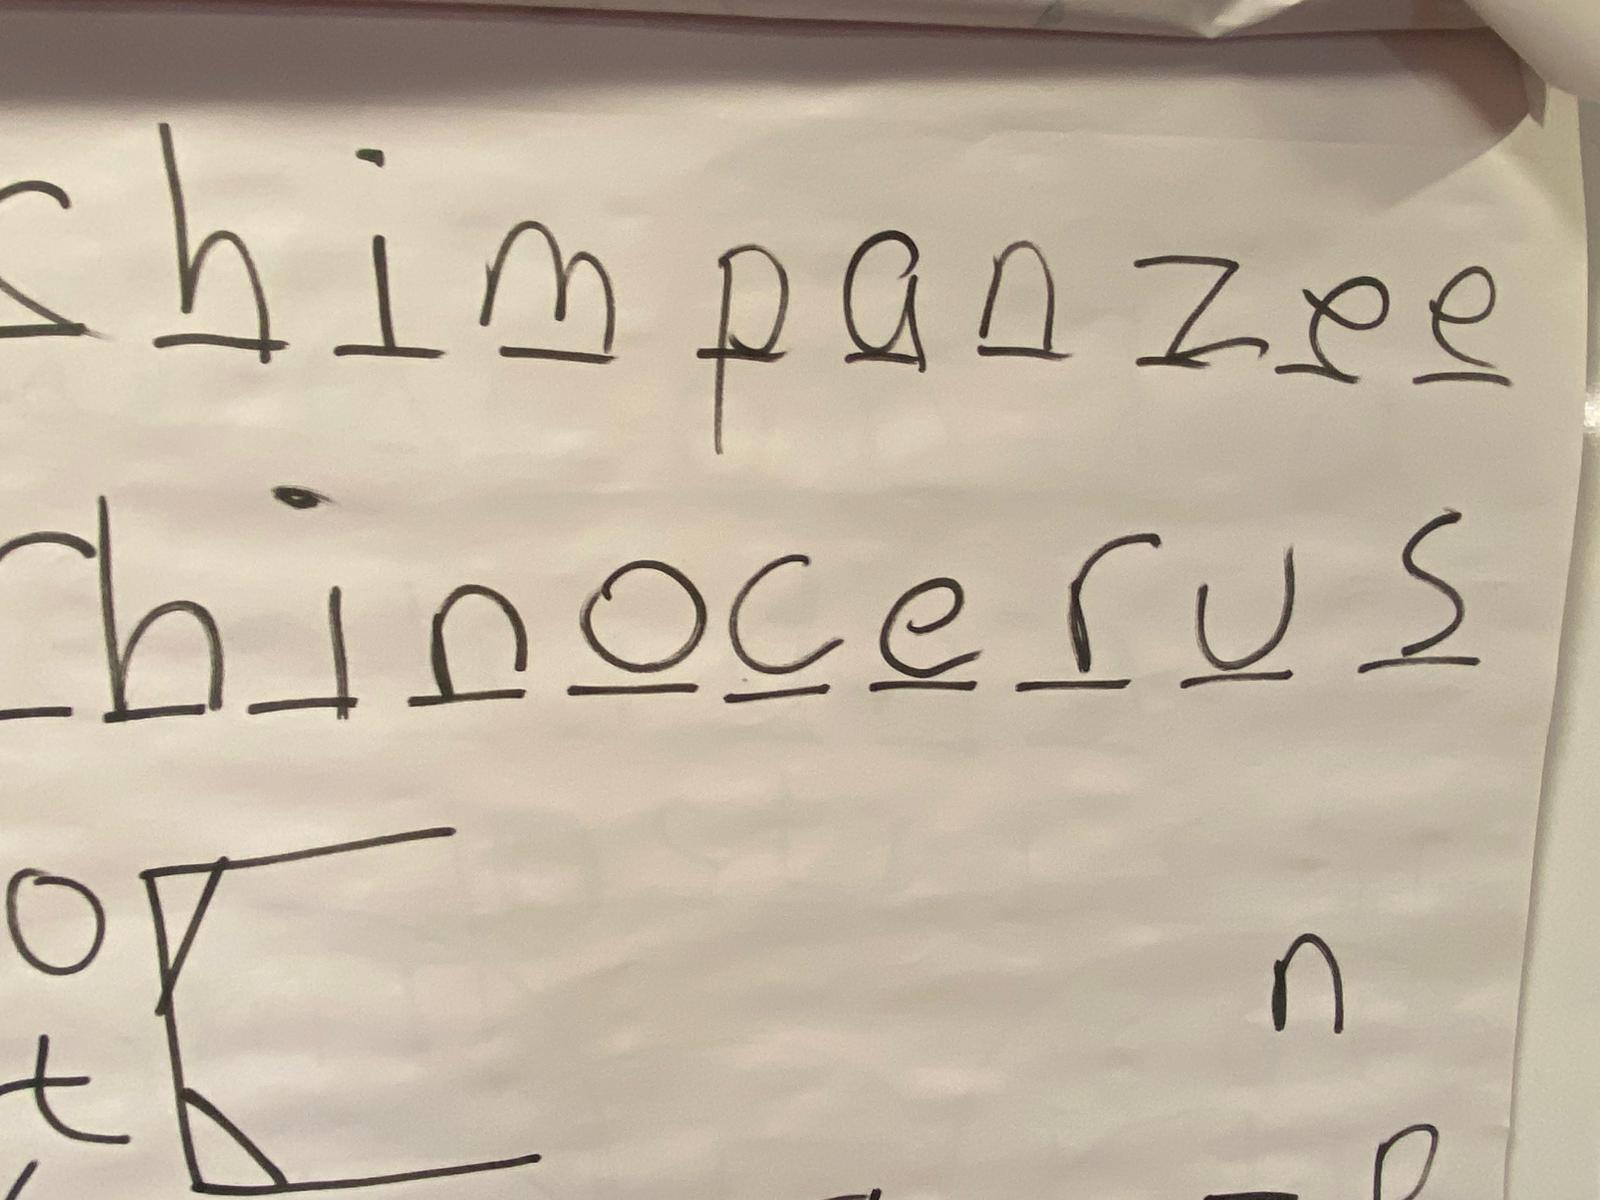 chimpanzee
rhinocerus
o
n
t